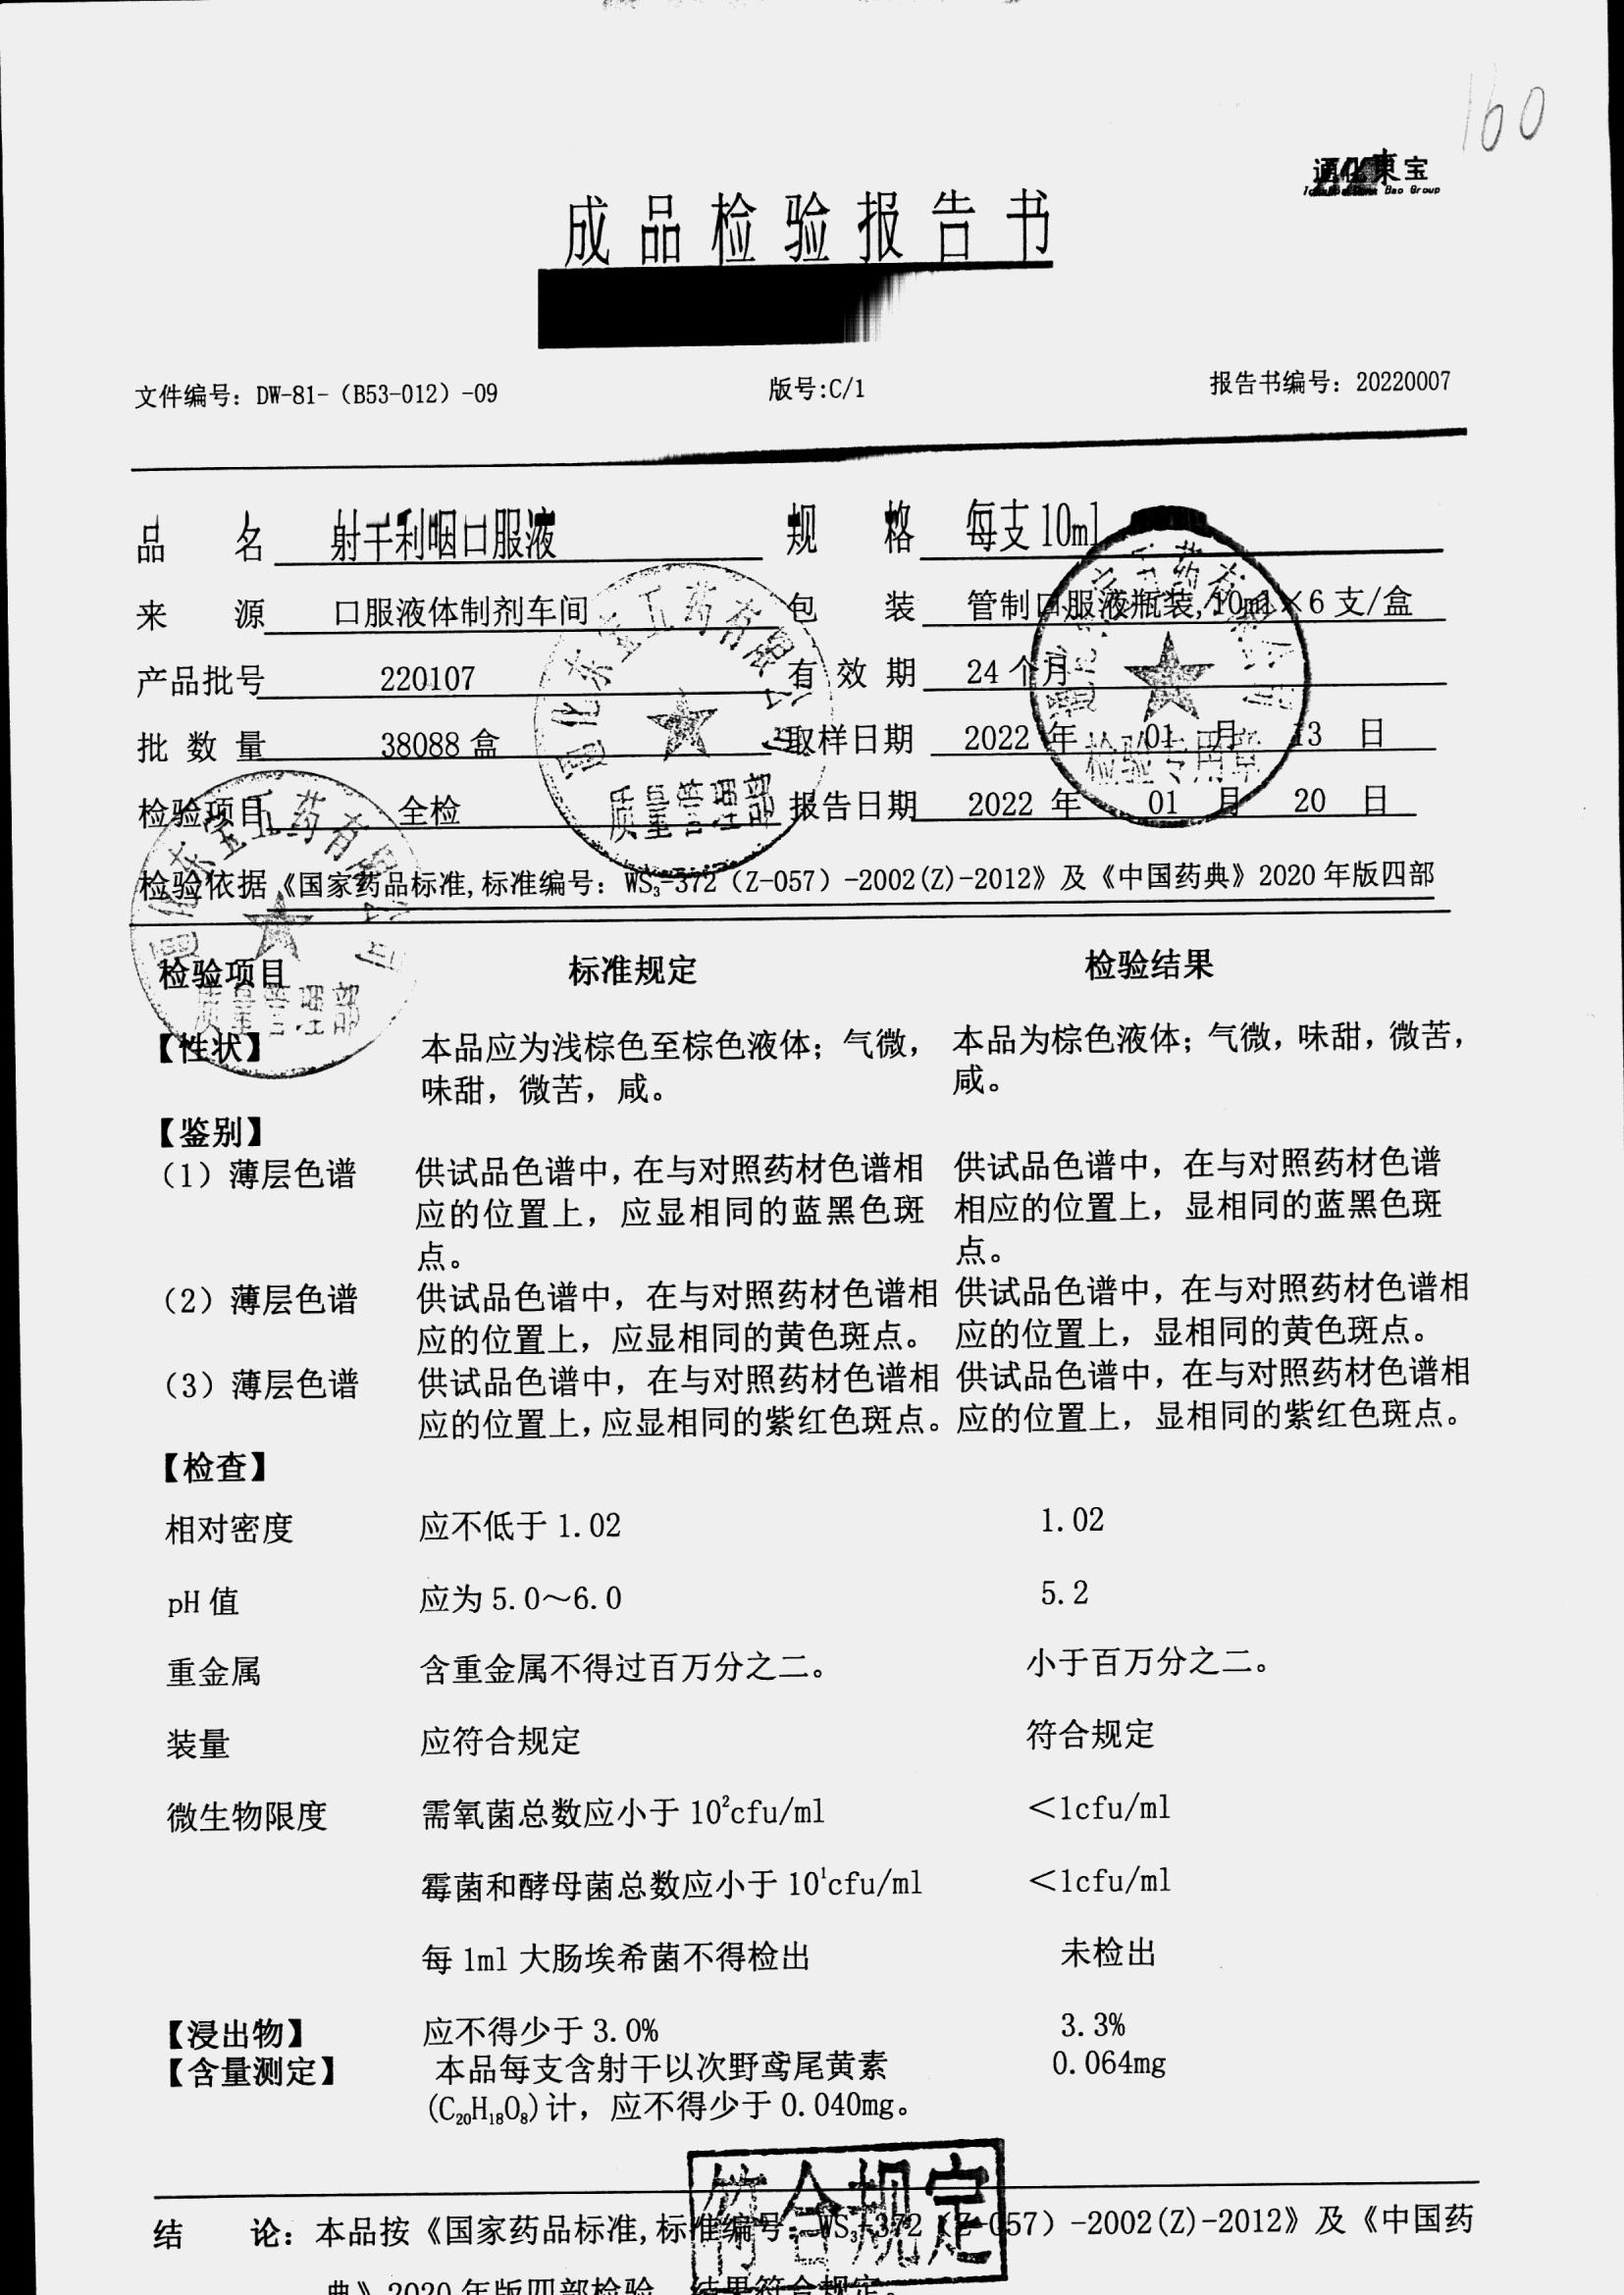 160
通化東宝
成品检验报告书
文件编号：DW-81-（B53-012）-09 版号:C/1 报告书编号：20220007
品 名 射干利咽口服液 规 格 每支10ml
来 源 口服液体制剂车间 包 装 管制口服液瓶装,10ml×6支/盒
产品批号 220107 有效期 24个月
批数量 38088盒 取样日期 2022年01月13日
检验项目 全检 报告日期 2022年01月20日
检验依据《国家药品标准,标准编号：WS₃-372（Z-057）-2002(Z)-2012》及《中国药典》2020年版四部
质量管理部
检验专用章
质量管理部
检验项目 标准规定 检验结果
【性状】 本品应为浅棕色至棕色液体；气微， 本品为棕色液体；气微，味甜，微苦，
味甜，微苦，咸。 咸。
【鉴别】
（1）薄层色谱 供试品色谱中,在与对照药材色谱相 供试品色谱中，在与对照药材色谱
应的位置上，应显相同的蓝黑色斑 相应的位置上，显相同的蓝黑色斑
点。 点。
（2）薄层色谱 供试品色谱中，在与对照药材色谱相 供试品色谱中，在与对照药材色谱相
应的位置上，应显相同的黄色斑点。 应的位置上，显相同的黄色斑点。
（3）薄层色谱 供试品色谱中，在与对照药材色谱相 供试品色谱中，在与对照药材色谱相
应的位置上,应显相同的紫红色斑点。 应的位置上，显相同的紫红色斑点。
【检查】
相对密度 应不低于1.02 1.02
pH值 应为5.0～6.0 5.2
重金属 含重金属不得过百万分之二。 小于百万分之二。
装量 应符合规定 符合规定
微生物限度 需氧菌总数应小于10²cfu/ml ＜1cfu/ml
霉菌和酵母菌总数应小于10¹cfu/ml ＜1cfu/ml
每1ml大肠埃希菌不得检出 未检出
【浸出物】 应不得少于3.0% 3.3%
【含量测定】 本品每支含射干以次野鸢尾黄素 0.064mg
(C₂₀H₁₈O₈)计，应不得少于0.040mg。
符合规定
结 论：本品按《国家药品标准,标准编号：WS₃-372（Z-057）-2002(Z)-2012》及《中国药
典》2020年版四部检验，结果符合规定。